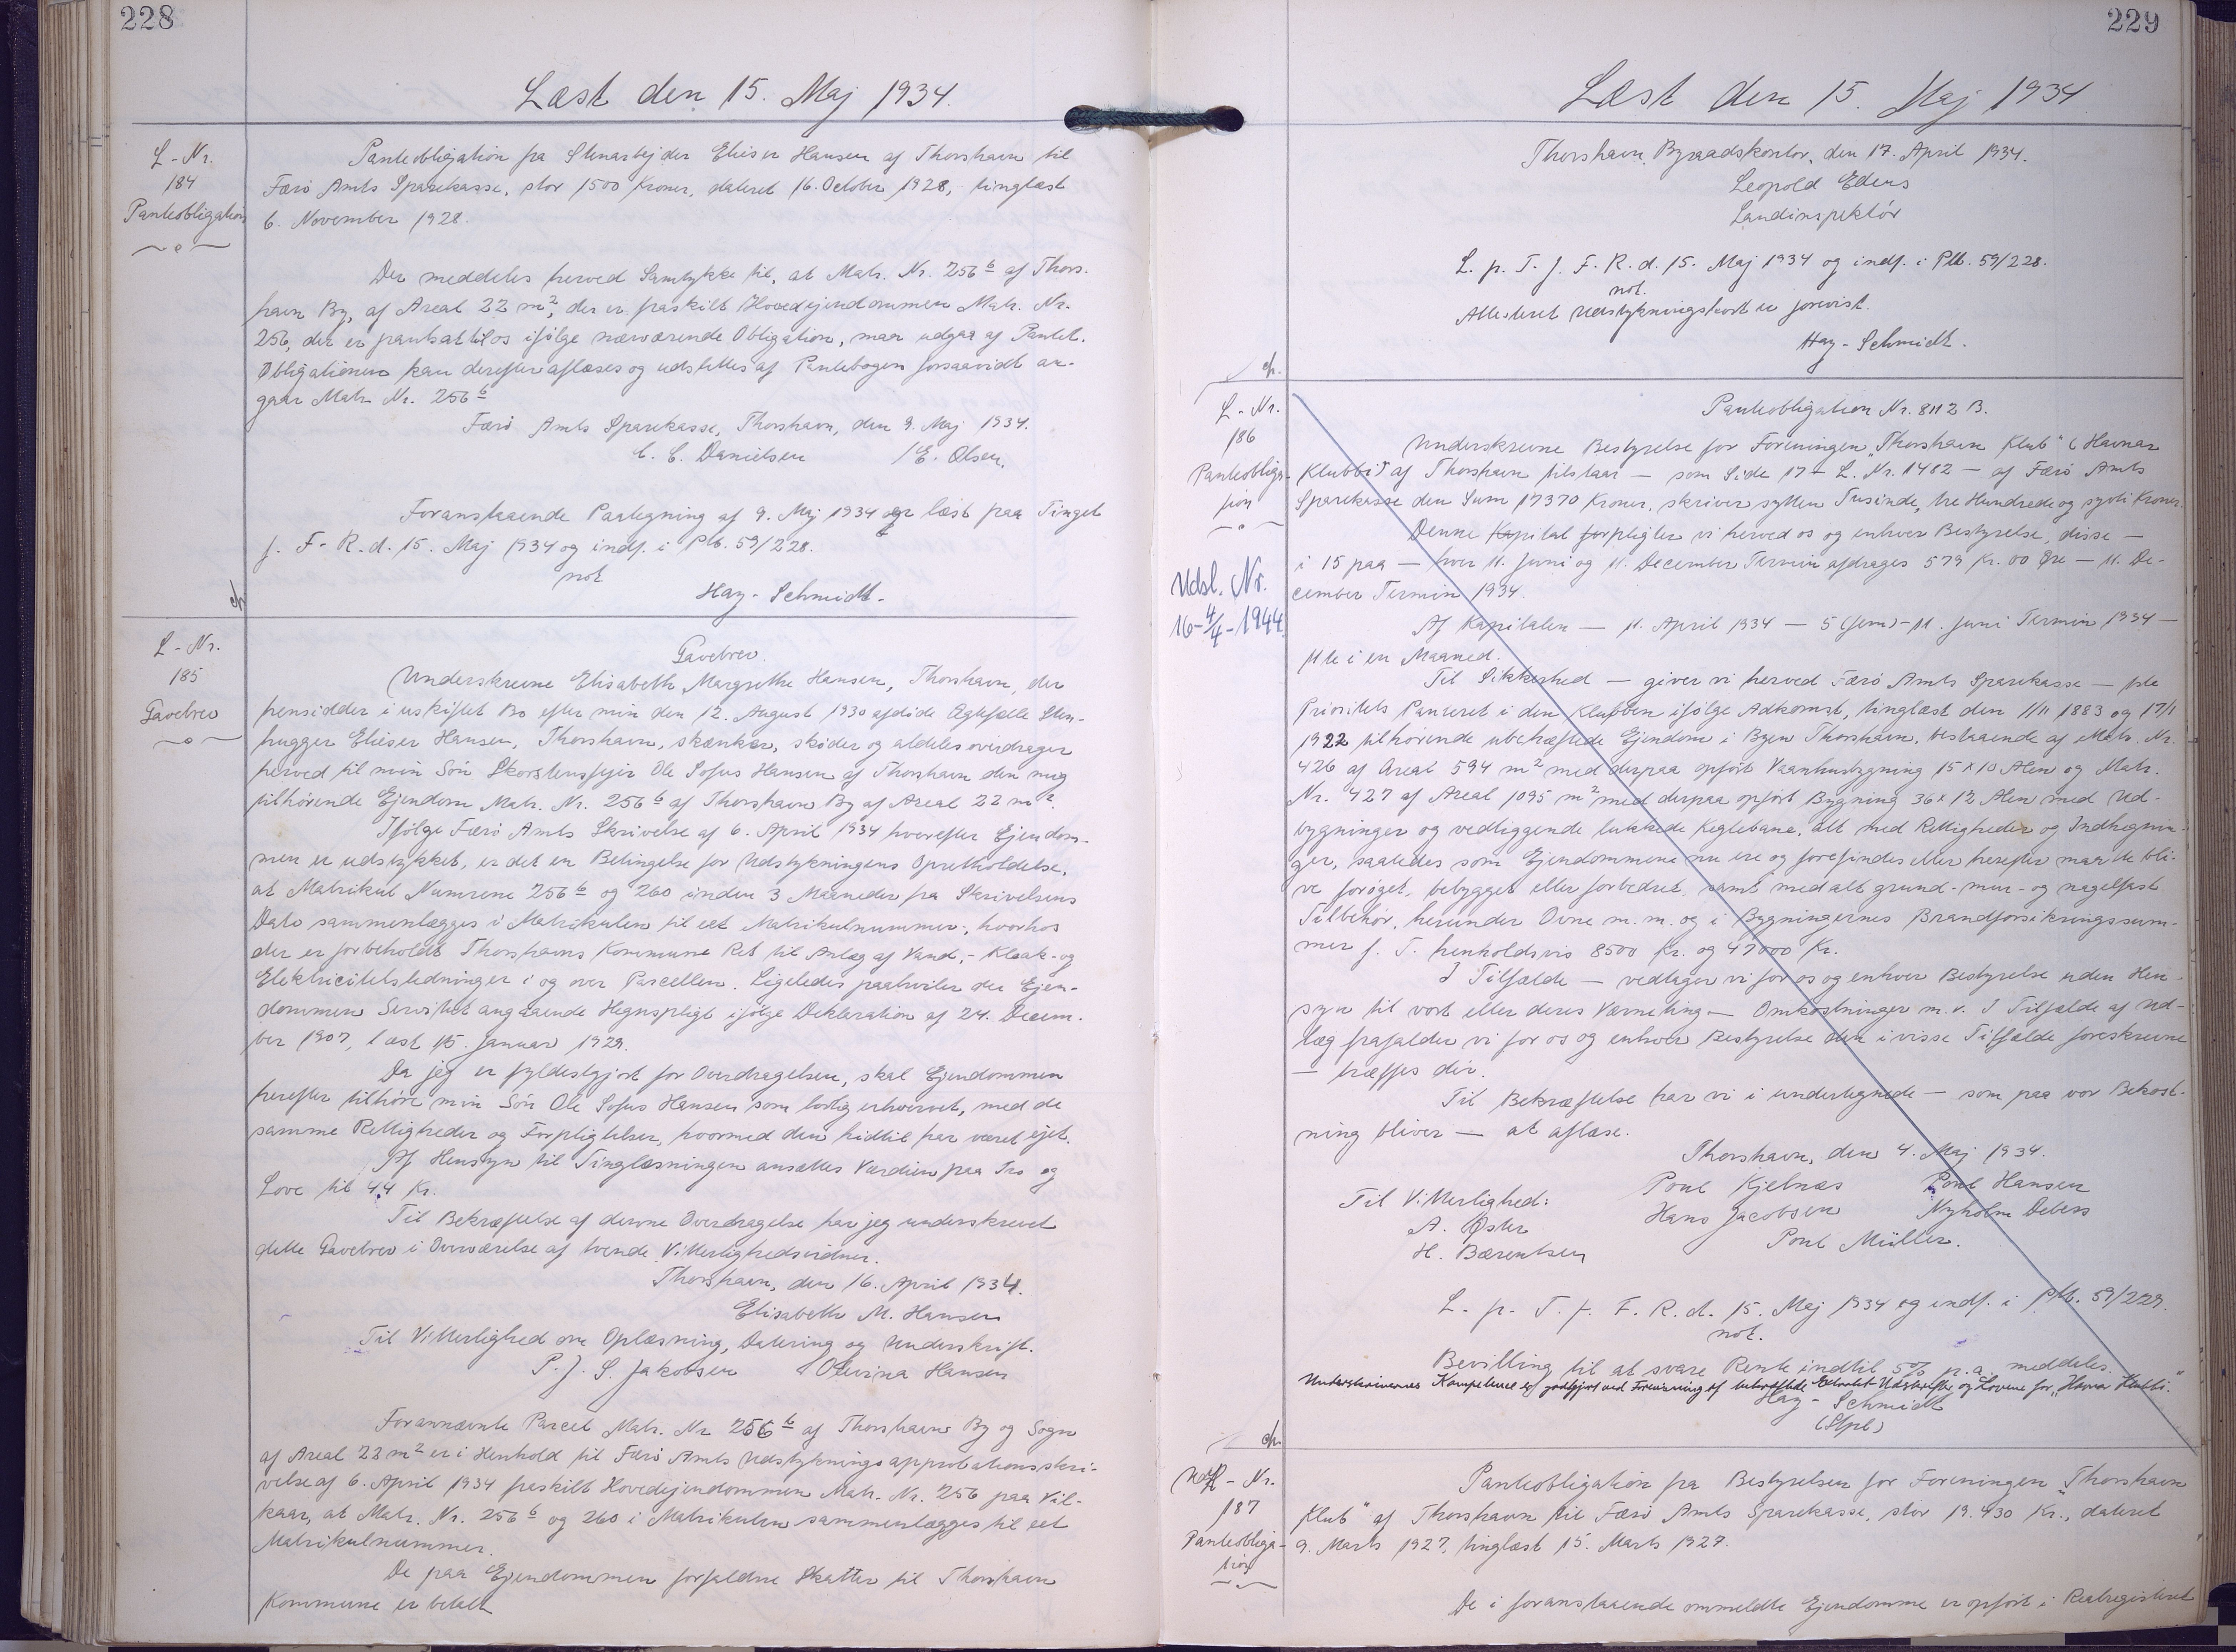 228
Læst den 15. Maj 1934.
L-Nr.
184
Panteobligation
Panteobligation fra Stenarbejder Elieser Hansen af Thorshavn til
Færö Amts Sparekasse, stor 1500 Kroner, dateret 16. October 1928, tinglæst
6. November 1928.
Der meddeles herved Samtykke til, at Matr. Nr. 256 b af Thors-
havn By, af Areal 22 m², der er fraskilt Hovedejendommen Matr. Nr.
256, der er pantsat til os ifølge nærværende Obligation, maa udgaa af Pantet.
Obligationen kan derefter aflæses og udslettes af Pantebogen forsaavidt an-
gaar Matr. Nr. 256 b
Færö Amts Sparekasse, Thorshavn, den 9. Maj 1934.
C. C. Danielsen / E. Olsen.
Foranstaaende Paategning af 9. Maj 1934 er læst paa Tinget
f. F. R. d. 15. Maj 1934 og indf. i Ptb. 59/228.
not
Hay-Schmidt.
L-Nr.
185
Gavebrev
Gavebrev.
Underskrevne Elisabeth Margrethe Hansen, Thorshavn, der
hensidder i uskiftet Bo efter min den 12. August 1930 afdöde Ægtefælle Sten-
hugger Elieser Hansen, Thorshavn, skænker, skøder og aldeles overdrager
herved til min Sön Skorstensfejer Ole Sofus Hansen af Thorshavn den mig
tilhörende Ejendom Matr. Nr. 256 b af Thorshavn By af Areal 22 m².
Ifölge Færö Amts Skrivelse af 6. April 1934 hvorefter Ejendom-
men er udstykket, er det en Betingelse for Udstykningens Opretholdelse,
at Matrikul Numrene 256 b og 260 inden 3 Maaneder fra Skrivelsens
Dato sammenlægges i Matrikulen til eet Matrikulnummer, hvorhos
der er forbeholdt Thorshavns Kommune Ret til Anlæg af Vand,- Kloak- og
Elektricitetsledninger i og over Parcellen. Ligeledes paahviler der Ejen-
dommen Servitut angaaende Hegnspligt ifölge Deklaration af 24. Decem-
ber 1907, læst 15. Januar 1929.
Da jeg er fyldestgjort for Overdragelsen, skal Ejendommen
herefter tilhöre min Sön Ole Sofus Hansen som lovlig erhvervet, med de
samme Rettigheder og Forpligtelser, hvormed den hidtil har været ejet.
Af Hensyn til Tinglæsningen ansættes Værdien paa Tro og
Love til 44 Kr.
Til Bekræftelse af denne Overdragelse har jeg underskrevet
dette Gavebrev i Overværelse af tvende Vitterlighedsvidner.
Thorshavn, den 16. April 1934.
Elisabeth M. Hansen
Til Vitterlighed om Oplæsning, Datering og Underskrift.
P. J. S. Jakobsen Olevina Hansen
Forannævnte Parcel Matr. Nr 256 b af Thorshavns By og Sogn
af Areal 22 m² er i Henhold til Færö Amts Udstykningsapprobationsskri-
velse af 6. April 1934 fraskilt Hovedejendommen Matr. Nr. 256 paa Vil-
kaar, at Matr. Nr. 256 b og 260 i Matrikulen sammenlægges til eet
Matrikulnummer.
De paa Ejendommen forfaldne Skatter til Thorshavn
Kommune er betalt
229
Læst den 15. Maj 1934
Thorshavn Byraadskontor, den 17. April 1934.
Leopold Edens
Landinspektör
L. p. T. f. F. R. d. 15. Maj 1934 og indf. i Ptb. 59/228.
not.
Attesteret Udstykningskort er forevist.
Hay-Schmidt.
L-Nr.
186
Panteobliga-
tion
Udsl. Nr.
16-4/4-1944
Panteobligation Nr. 8112 B.
Underskrevne Bestyrelse for Foreningen "Thorshavn Klub" (Havnar
Klubbi) af Thorshavn tilstaar — som Side 17 - L. Nr. 1482 — af Færö Amts
Sparekasse den Sum 17370 Kroner, skriver sytten Tusinde, tre Hundrede og syvti Kroner.
Denne Kapital forpligter vi herved os og enhver Bestyrelse, disse —
i 15 paa — hver 11. Juni og 11. December Termin afdrages 579 Kr. 00 Øre — 11. De-
cember Termin 1934.
Af Kapitalen — 11. April 1934 — 5 (fem) - 11. Juni Termin 1934 —
11te i en Maaned.
Til Sikkerhed — giver vi herved Færö Amts Sparekasse — 1ste
Prioritets Panteret i den Klubben ifölge Adkomst, tinglæst den 1/11 1883 og 17/1
1922 tilhörende ubehæftede Ejendom i Byen Thorshavn, bestaaende af Matr. Nr.
426 af Areal 594 m² med derpaa opfört Vaanhusbygning 15 x 10 Alen og Matr.
Nr. 427 af Areal 1095 m² med derpaa opfört Bygning 36 x 12 Alen med Ud-
bygninger og vedliggende lukkede Keglebane, alt med Rettigheder og Indhegnin-
ger, saaledes som Ejendommene nu ere og forefindes eller herefter maatte bli-
ve forøget, bebygget eller forbedret, samt med alt grund- mur- og nagelfast
Tilbehör, herunder Ovne m. m. og i Bygningernes Brandforsikringssum-
mer f. T. henholdsvis 8500 Kr. og 47000 Kr.
I Tilfælde — vedtager vi for os og enhver Bestyrelse uden Hen-
syn til vort eller deres Værneting — Omkostninger m. v. I Tilfælde af Ud-
læg frafalder vi for os og enhver Bestyrelse den i visse Tilfælde foreskrevne
— træffes der.
Til Bekræftelse har vi i undertegnede — som paa vor Bekost-
ning bliver — at aflæse.
Thorshavn, den 4. Maj 1934.
Til Vitterlighed: Poul Kjelnæs Poul Hansen
A. Øster Hans Jacobsen Nyholm Debess
H. Bærentsen Poul Müller.
L. p. T. f. F. R. d. 15. Maj 1934 og indf. i Ptb. 59/229.
not.
Bevilling til at svare Rente indtil 5% p. a. meddeles.
Underskrivernes Kompetence er godtgjort ved Forevisning af bekræftede Extrakt-Udskrifter og Lovene for "Havnar Klubbi."
Hay-Schmidt
(Stpl)
L-Nr.
187
Panteobliga-
tion
Panteobligation fra Bestyrelsen for Foreningen "Thorshavn
Klub" af Thorshavn til Færö Amts Sparekasse, stor 19.430 Kr., dateret
9. Marts 1927, tinglæst 15. Marts 1927.
De i foranstaaende ommeldte Ejendomme er opfört i Realregistret